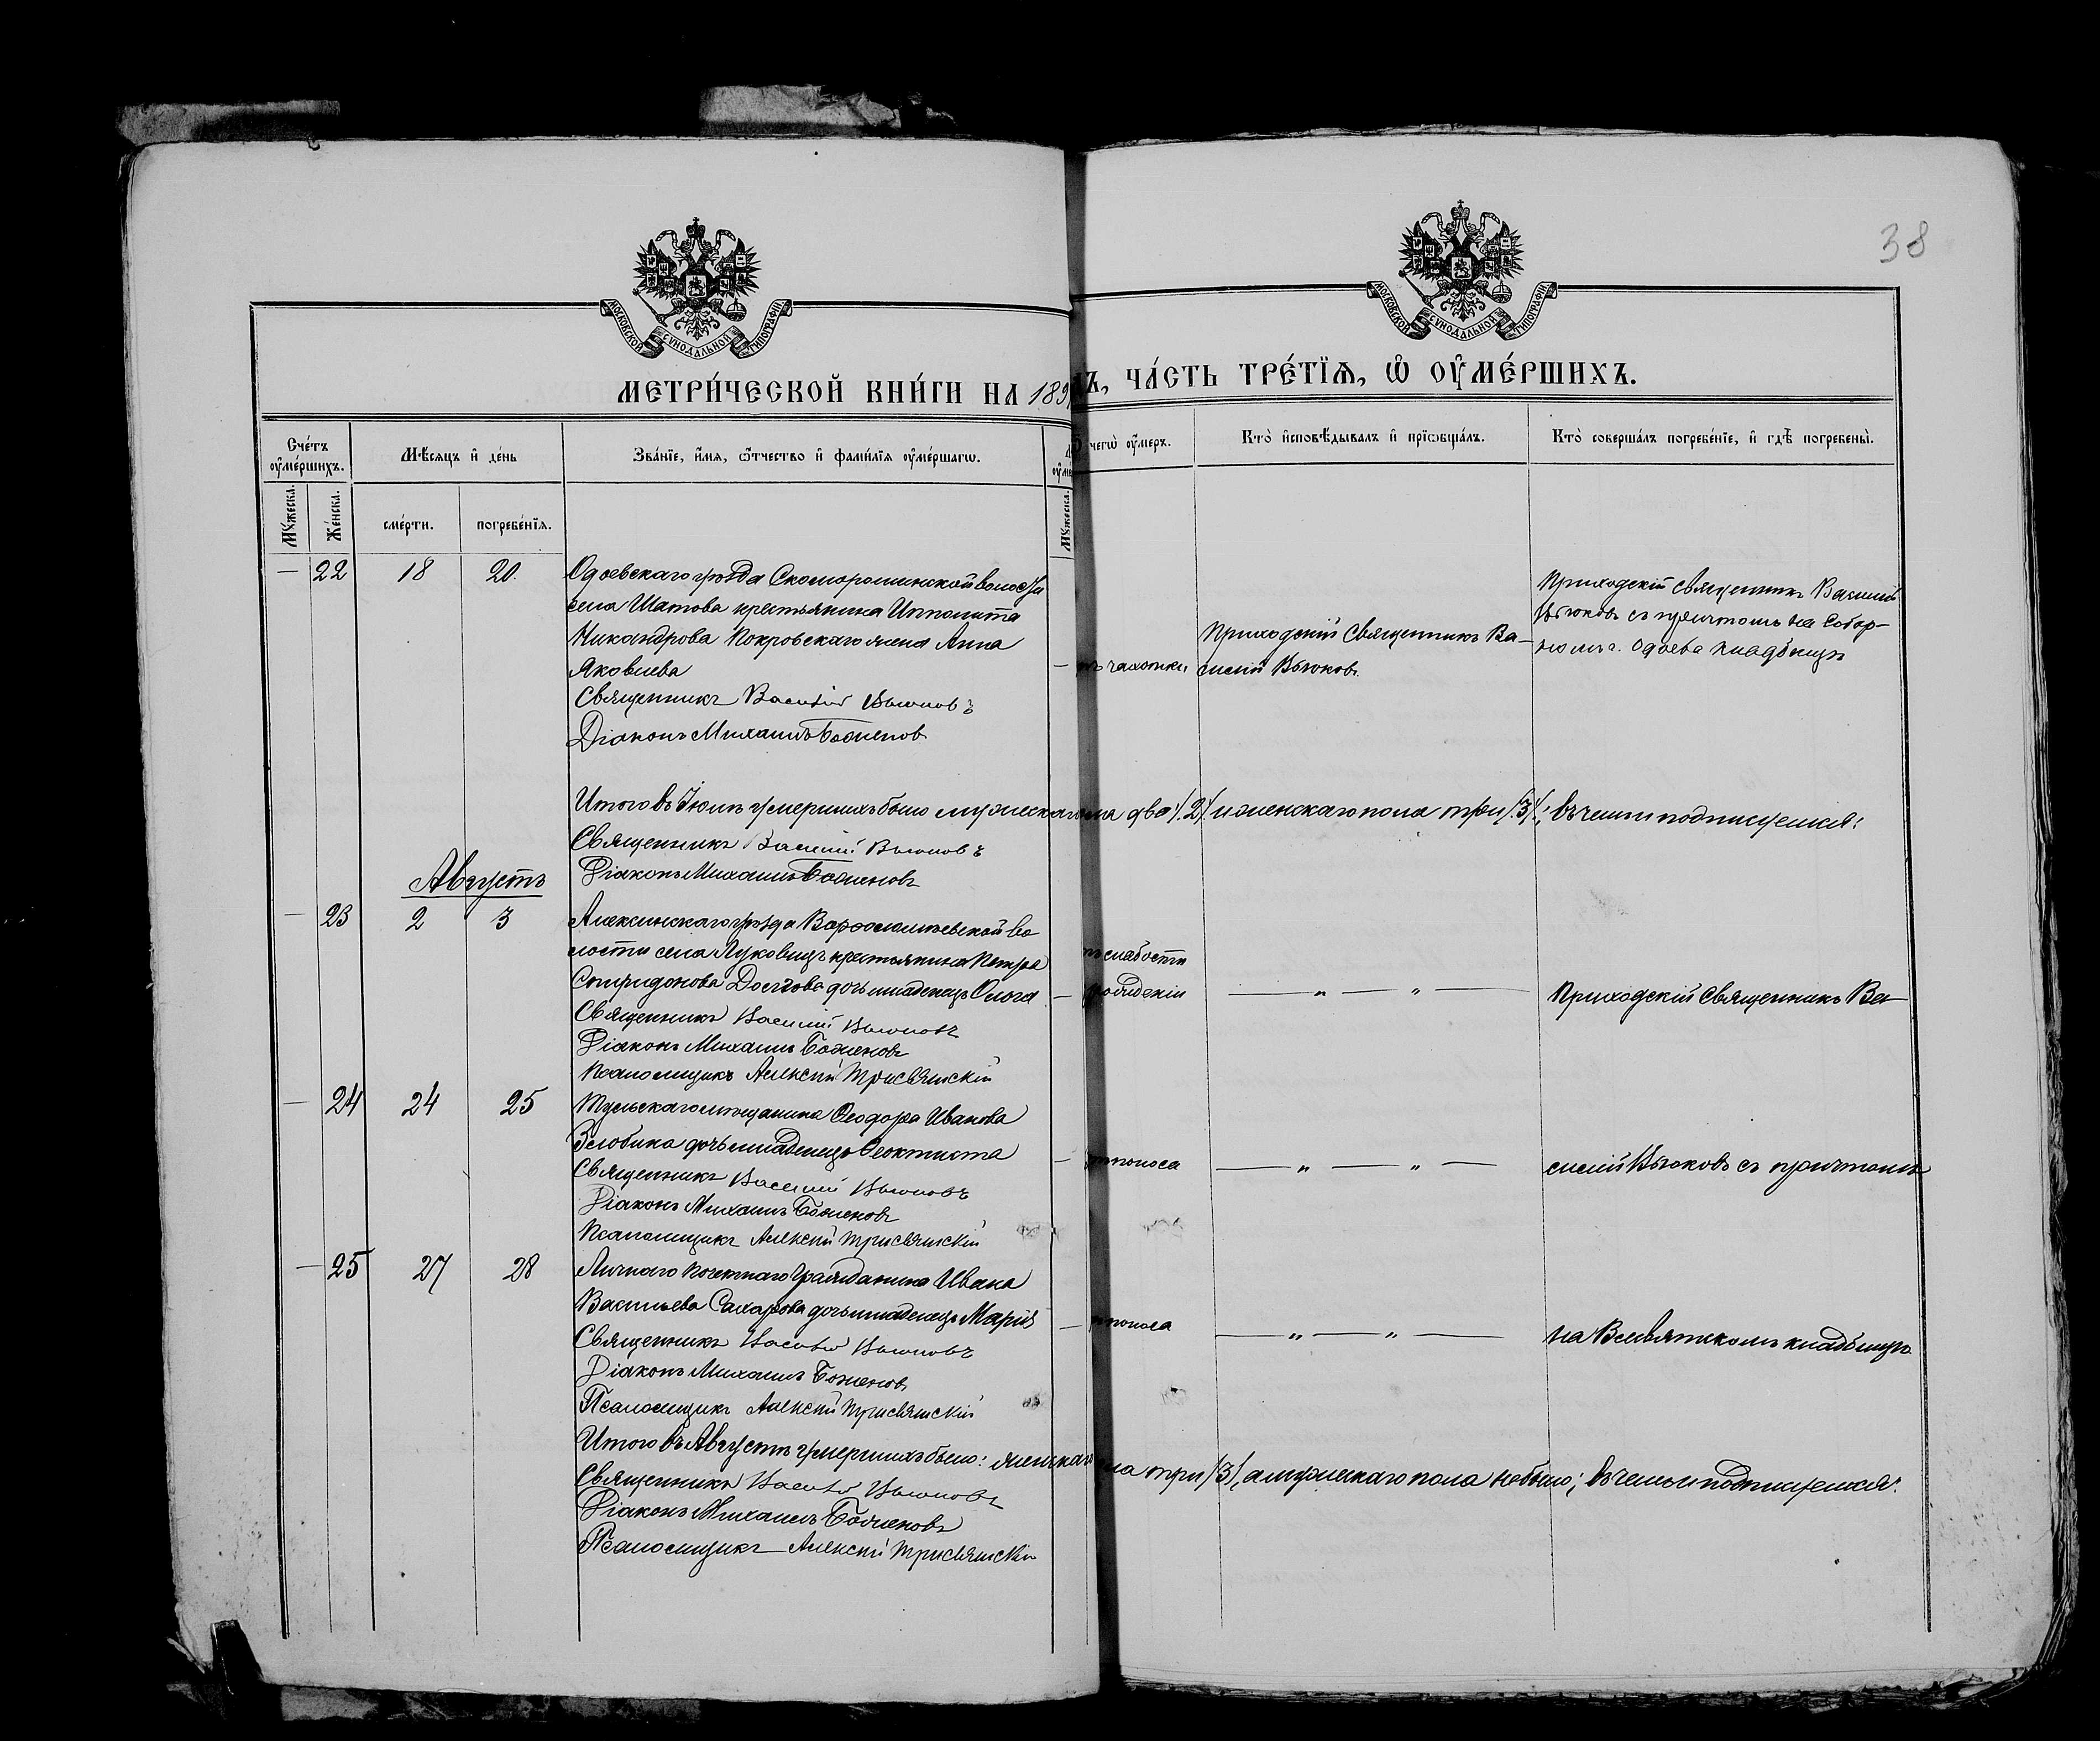 38
МОСКОВСКОЙ СѴНОДАЛЬНОЙ ТИПОГРАФІИ
МОСКОВСКОЙ СѴНОДАЛЬНОЙ ТИПОГРАФІИ
МЕТРИ́ЧЕСКОЙ КНИ́ГИ НА 189
Ъ, ЧА́СТЬ ТРЕ́ТЇѦ, Ѡ ОУМЕ́РШИХЪ.
Сче́тъ оумéршихъ.
Мѣ́сяцъ и де́нь
Зва́нїе, и́мя, ѿчество и фами́лїя оумéршагѡ.
чегѡ̀ оу́меръ.
Кто̀ исповѣ́дывалъ и прїѡбща́лъ.
Кто̀ соверша́лъ погребе́нїе, и гдѣ̀ погребены̀.
Мꙋ́жеска.
Же́нска.
сме́рти.
погребе́нїя.
Мꙋ́жеска.
— 22 18 20.
Одоевскаго уѣзда Скоморошинской волости
села Шатова крестьянина Ипполита
Никандрова Покровскаго жена Анна
Яковлева
Священникъ Василій Вьюковъ
Діаконъ Михаилъ Боженовъ
— чахотки
Приходскій Священникъ Ва-
силій Вьюковъ.
Приходскій Священникъ Василій
Вьюковъ съ причтомъ на Собор-
номъ г. Одоева кладбищѣ
Итого въ Іюлѣ умершихъ было мужескаго ла два /2/ и женскаго пола три /3/; въ чемъ и подпишемся:
Священникъ Василій Вьюковъ
Діаконъ Михаилъ Боженовъ
Августъ
— 23 2 3
Алексинскаго уѣзда Варфоломеевской во
лости села Луковицъ крестьянина Петра
Спиридонова Долгова дочь младенецъ Ольга
Священникъ Василій Вьюковъ
Діаконъ Михаилъ Боженовъ
Псаломщикъ Алексѣй Трисвятскій
слабости
— рожденіи
— „ — „ —
Приходскій Священникъ Ва-
— 24 24 25
Тульскаго мѣщанина Ѳеодора Иванова
Злобина дочь младенецъ Ѳеоктиста
Священникъ Василій Вьюковъ
Діаконъ Михаилъ Боженовъ
Псаломщикъ Алексѣй Трисвятскій
— поноса
— „ — „ —
силій Вьюковъ съ причтомъ
— 25 27 28
Личнаго Почетнаго Гражданина Ивана
Васильева Сахарова дочь младенецъ Марія
Священникъ Василій Вьюковъ
Діаконъ Михаилъ Боженовъ
Псаломщикъ Алексѣй Трисвятскій
— поноса
— „ — „ —
на Всесвятскомъ кладбищѣ.
Итого въ Августѣ умершихъ было: женскаго ла три /3/, а мужескаго пола не было; въ чемъ и подпишемся:
Священникъ Василій Вьюковъ
Діаконъ Михаилъ Боженовъ
Псаломщикъ Алексѣй Трисвятскій